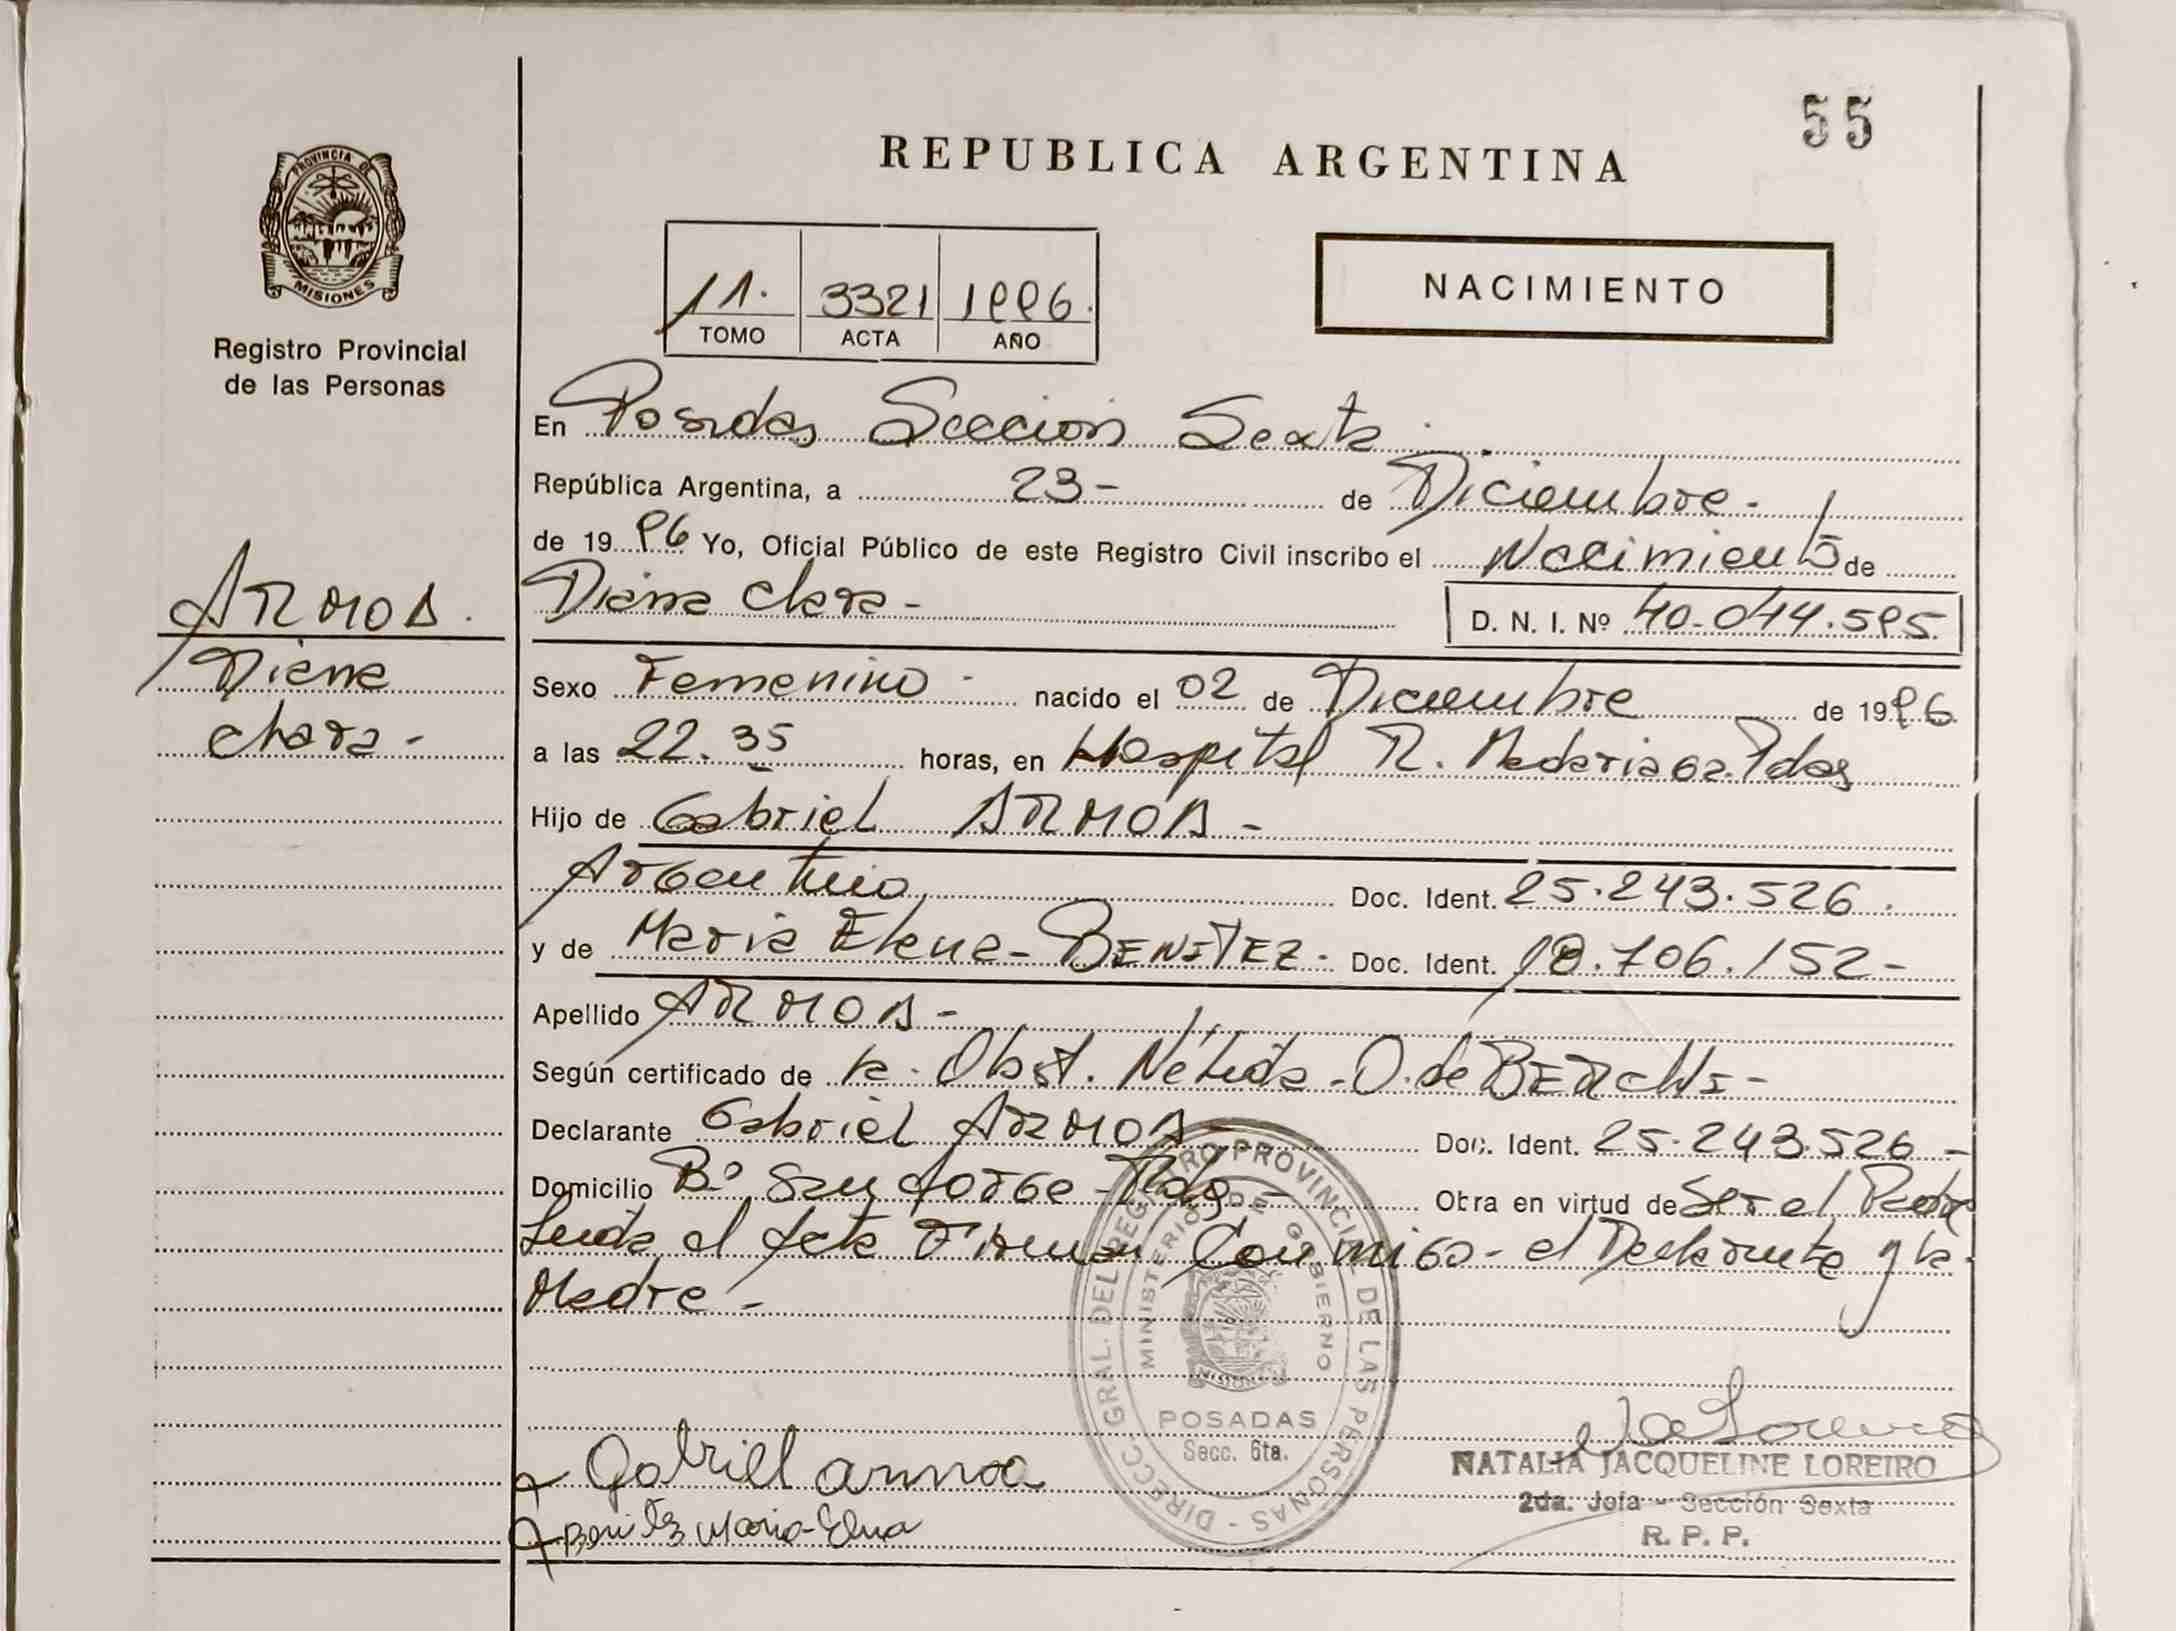 55
REPUBLICA ARGENTINA
PROVINCIA DE
MISIONES
Registro Provincial
de las Personas
11. 3321 1996.
TOMO ACTA AÑO
NACIMIENTO
En Posadas Sección Sexta.
República Argentina, a 23- de Diciembre-
de 1996 Yo, Oficial Público de este Registro Civil inscribo el Nacimiento de
Diana Clara-
D. N. I. Nº 40.044.595
ARMOA.
Diana
Clara-
Sexo Femenino- nacido el 02 de Diciembre de 1996
a las 22.35 horas, en Hospital R. Madariaga. Pdas
Hijo de Gabriel ARMOA-
Argentino Doc. Ident. 25.243.526.
y de Maria Elena- BENITEZ- Doc. Ident. 18.706.152-
Apellido ARMOA-
Según certificado de la Obst. Nélida O. de
Declarante Gabriel ARMOA- Doc. Ident. 25.243.526-
Domicilio Bº San Jorge-Pdas- Obra en virtud de Ser el Padre
Leída el Acta Firman Conmigo- el Declarante y la
Madre-
DIRECC. GRAL. DEL REGISTRO PROVINCIAL DE LAS PERSONAS -
MINISTERIO DE GOBIERNO
MISIONES
POSADAS
Secc. 6ta.
Gabriel armoa
Benitez Maria Elena
NATALIA JACQUELINE LOREIRO
2da. Jefa - Sección Sexta
R. P. P.